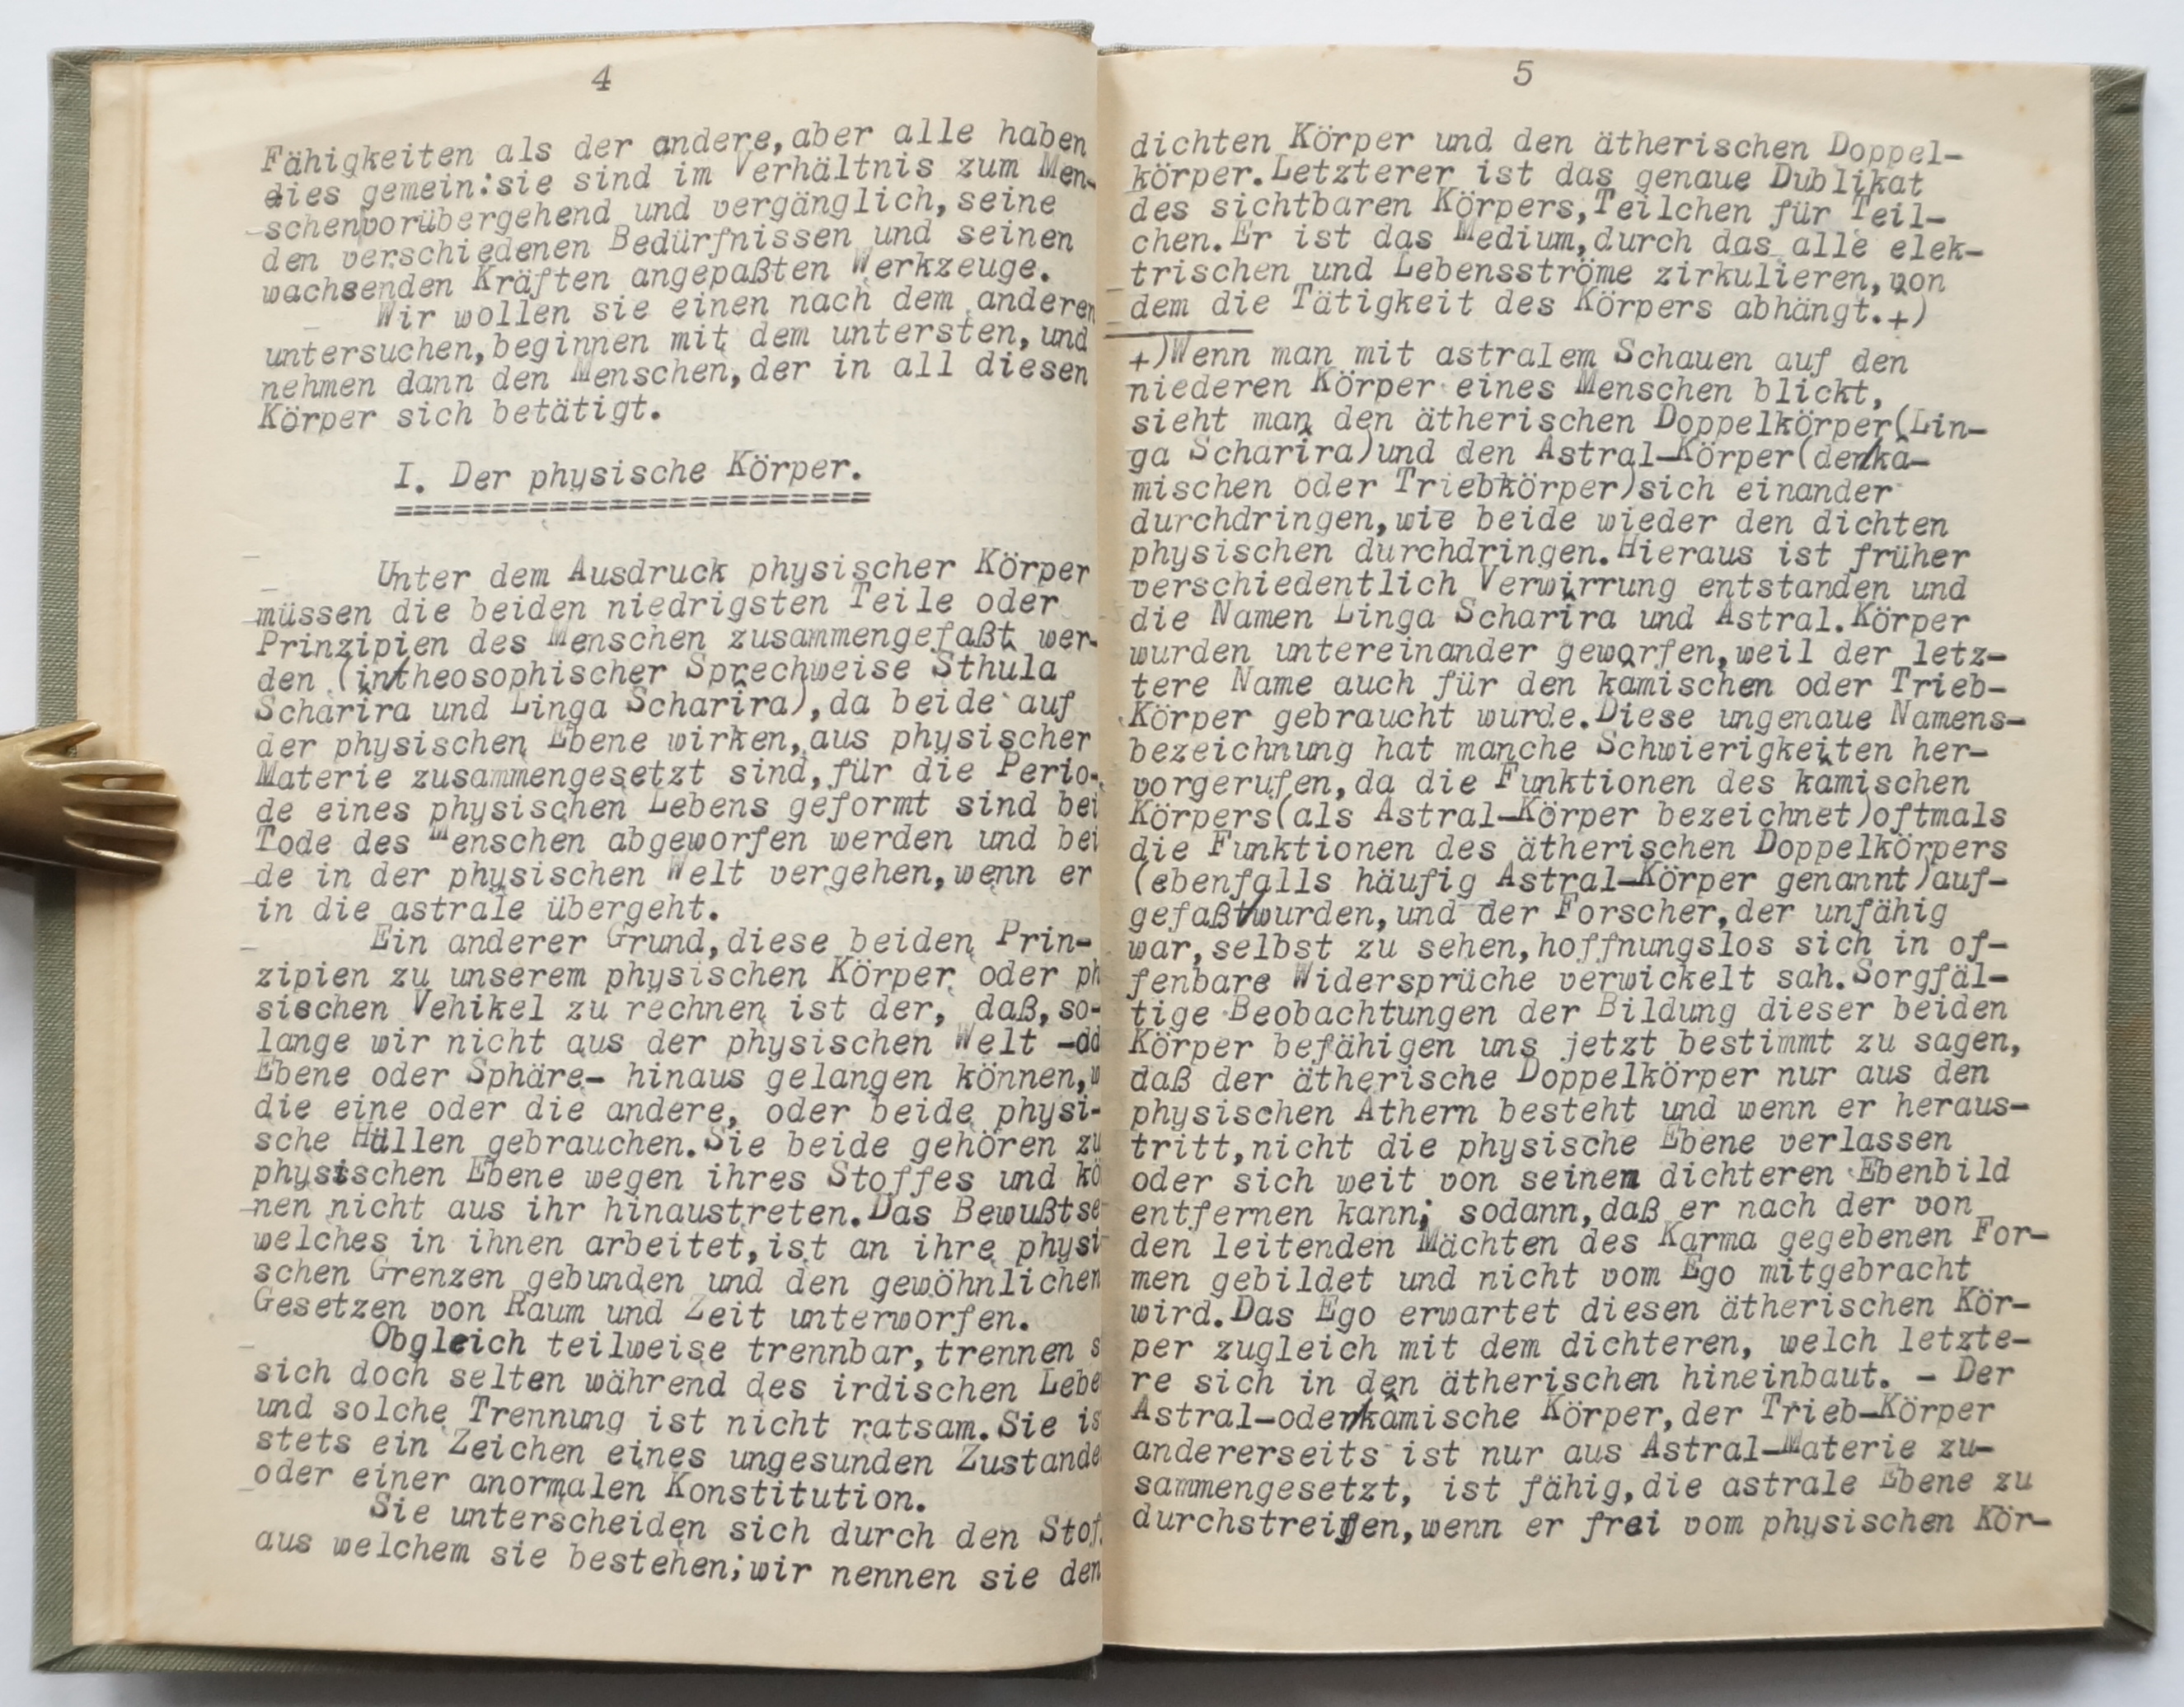 4
Fähigkeiten als der andere,aber alle haben
dies gemein:sie sind im Verhältnis zum Men-
schenvorübergehend und vergänglich,seine
den verschiedenen Bedürfnissen und seinen
wachsenden Kräften angepaßten Werkzeuge.
Wir wollen sie einen nach dem anderen
untersuchen,beginnen mit dem untersten,und
nehmen dann den Menschen,der in all diesen
Körper sich betätigt.
I. Der physische Körper.
=========================
Unter dem Ausdruck physischer Körper
müssen die beiden niedrigsten Teile oder
Prinzipien des Menschen zusammengefaßt wer-
den (in/theosophischer Sprechweise Sthula
Scharîra und Linga Scharîra),da beide auf
der physischen Ebene wirken,aus physischer
Materie zusammengesetzt sind,für die Perio-
de eines physischen Lebens geformt sind bei
Tode des Menschen abgeworfen werden und bei
de in der physischen Welt vergehen,wenn er
in die astrale übergeht.
Ein anderer Grund,diese beiden Prin-
zipien zu unserem physischen Körper oder ph
sischen Vehikel zu rechnen ist der, daß,so-
lange wir nicht aus der physischen Welt -
Ebene oder Sphäre- hinaus gelangen können,
die eine oder die andere, oder beide physi-
sche Hüllen gebrauchen.Sie beide gehören zu
physischen Ebene wegen ihres Stoffes und kö
nen nicht aus ihr hinaustreten.Das Bewußtse
welches in ihnen arbeitet,ist an ihre physi
schen Grenzen gebunden und den gewöhnlichen
Gesetzen von Raum und Zeit unterworfen.
Obgleich teilweise trennbar,trennen s
sich doch selten während des irdischen Lebe
und solche Trennung ist nicht ratsam.Sie is
stets ein Zeichen eines ungesunden Zustande
oder einer anormalen Konstitution.
Sie unterscheiden sich durch den Stof
aus welchem sie bestehen;wir nennen sie den
5
dichten Körper und den ätherischen Doppel-
körper.Letzterer ist das genaue Dublikat
des sichtbaren Körpers,Teilchen für Teil-
chen.Er ist das Medium,durch das alle elek-
trischen und Lebensströme zirkulieren,von
dem die Tätigkeit des Körpers abhängt.+)
+)Wenn man mit astralem Schauen auf den
niederen Körper eines Menschen blickt,
sieht man den ätherischen Doppelkörper(Lin-
ga Scharîra)und den Astral-Körper(den/kâ-
mischen oder Triebkörper)sich einander
durchdringen,wie beide wieder den dichten
physischen durchdringen.Hieraus ist früher
verschiedentlich Verwirrung entstanden und
die Namen Linga Scharîra und Astral.Körper
wurden untereinander geworfen,weil der letz-
tere Name auch für den kâmischen oder Trieb-
Körper gebraucht wurde.Diese ungenaue Namens-
bezeichnung hat manche Schwierigkeiten her-
vorgerufen,da die Funktionen des kâmischen
Körpers(als Astral-Körper bezeichnet)oftmals
die Funktionen des ätherischen Doppelkörpers
(ebenfalls häufig Astral-Körper genannt)auf-
gefaßt/wurden,und der Forscher,der unfähig
war,selbst zu sehen,hoffnungslos sich in of-
fenbare Widersprüche verwickelt sah.Sorgfäl-
tige Beobachtungen der Bildung dieser beiden
Körper befähigen uns jetzt bestimmt zu sagen,
daß der ätherische Doppelkörper nur aus den
physischen Äthern besteht und wenn er heraus-
tritt,nicht die physische Ebene verlassen
oder sich weit von seinem dichteren Ebenbild
entfernen kann; sodann,daß er nach der von
den leitenden Mächten des Karma gegebenen For-
men gebildet und nicht vom Ego mitgebracht
wird.Das Ego erwartet diesen ätherischen Kör-
per zugleich mit dem dichteren, welch letzte-
re sich in den ätherischen hineinbaut. - Der
Astral-oder/kâmische Körper,der Trieb-Körper
andererseits ist nur aus Astral-Materie zu-
sammengesetzt, ist fähig,die astrale Ebene zu
durchstreifen,wenn er frei vom physischen Kör-